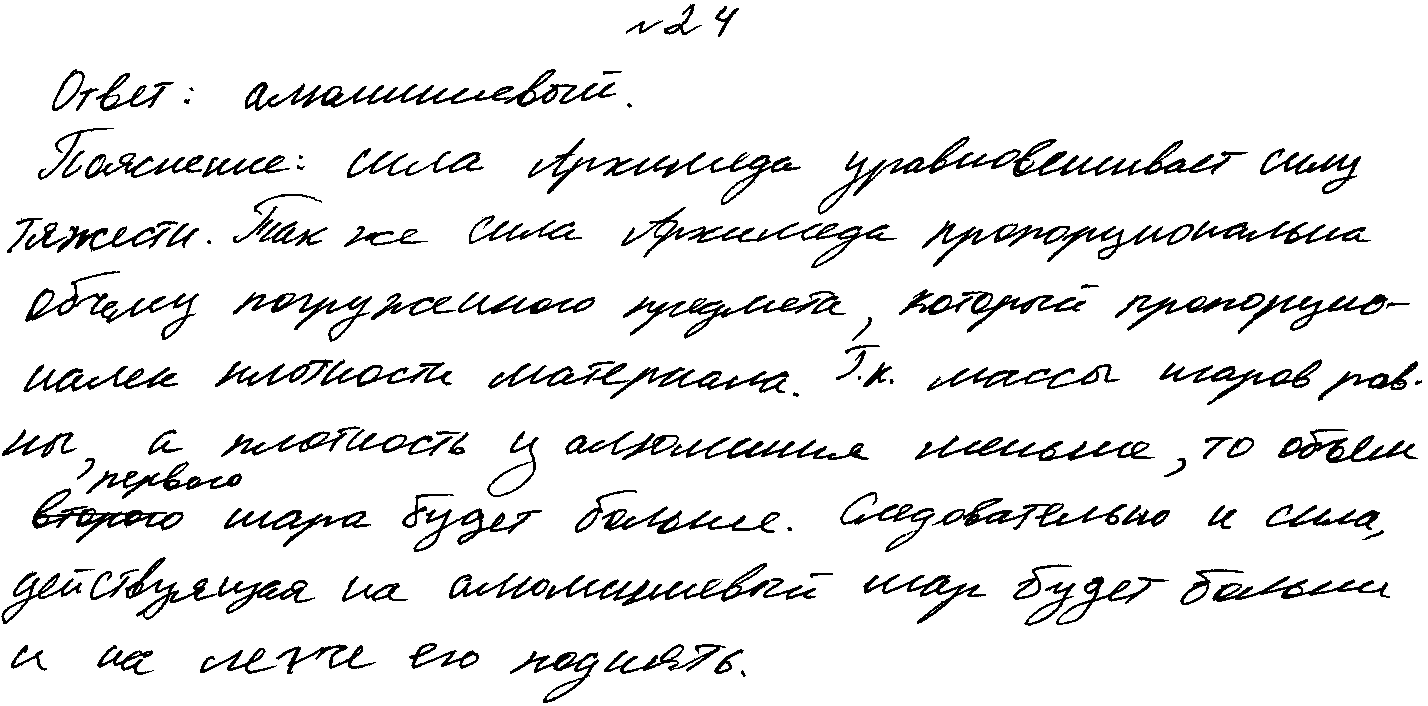 №24
Ответ: алюминиевый.
Пояснение: сила Архимеда уравновешивает силу
тяжести. Так же сила Архимеда пропорциональна
объёму погруженного предмета, который пропорцио-
нален плотности материала. Т.к. массы шаров рав-
ны, а плотность у алюминия меньше, то объем
первого
второго шара будет больше. Следовательно и сила,
действующая на алюминиевый шар будет больше
и на легче его поднять.